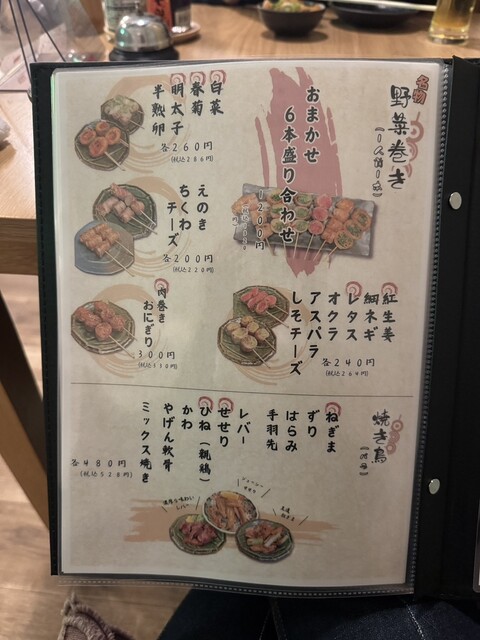 名物
野菜巻き
おまかせ
6本盛り合わせ
1200円
紅生姜
細ネギ
レタス
オクラ
アスパラ
しそチーズ
各240円
(税込264円)
白菜
春菊
明太子
半熟卵
各260円
(税込286円)
えのき
ちくわ
チーズ
各200円
(税込220円)
肉巻き
おにぎり
300円
焼き鳥
ねぎま
ずり
はらみ
手羽先
レバー
せせり
ひね(親鶏)
かわ
やげん軟骨
ミックス焼き
各480円
(税込528円)
ジューシー
レバー